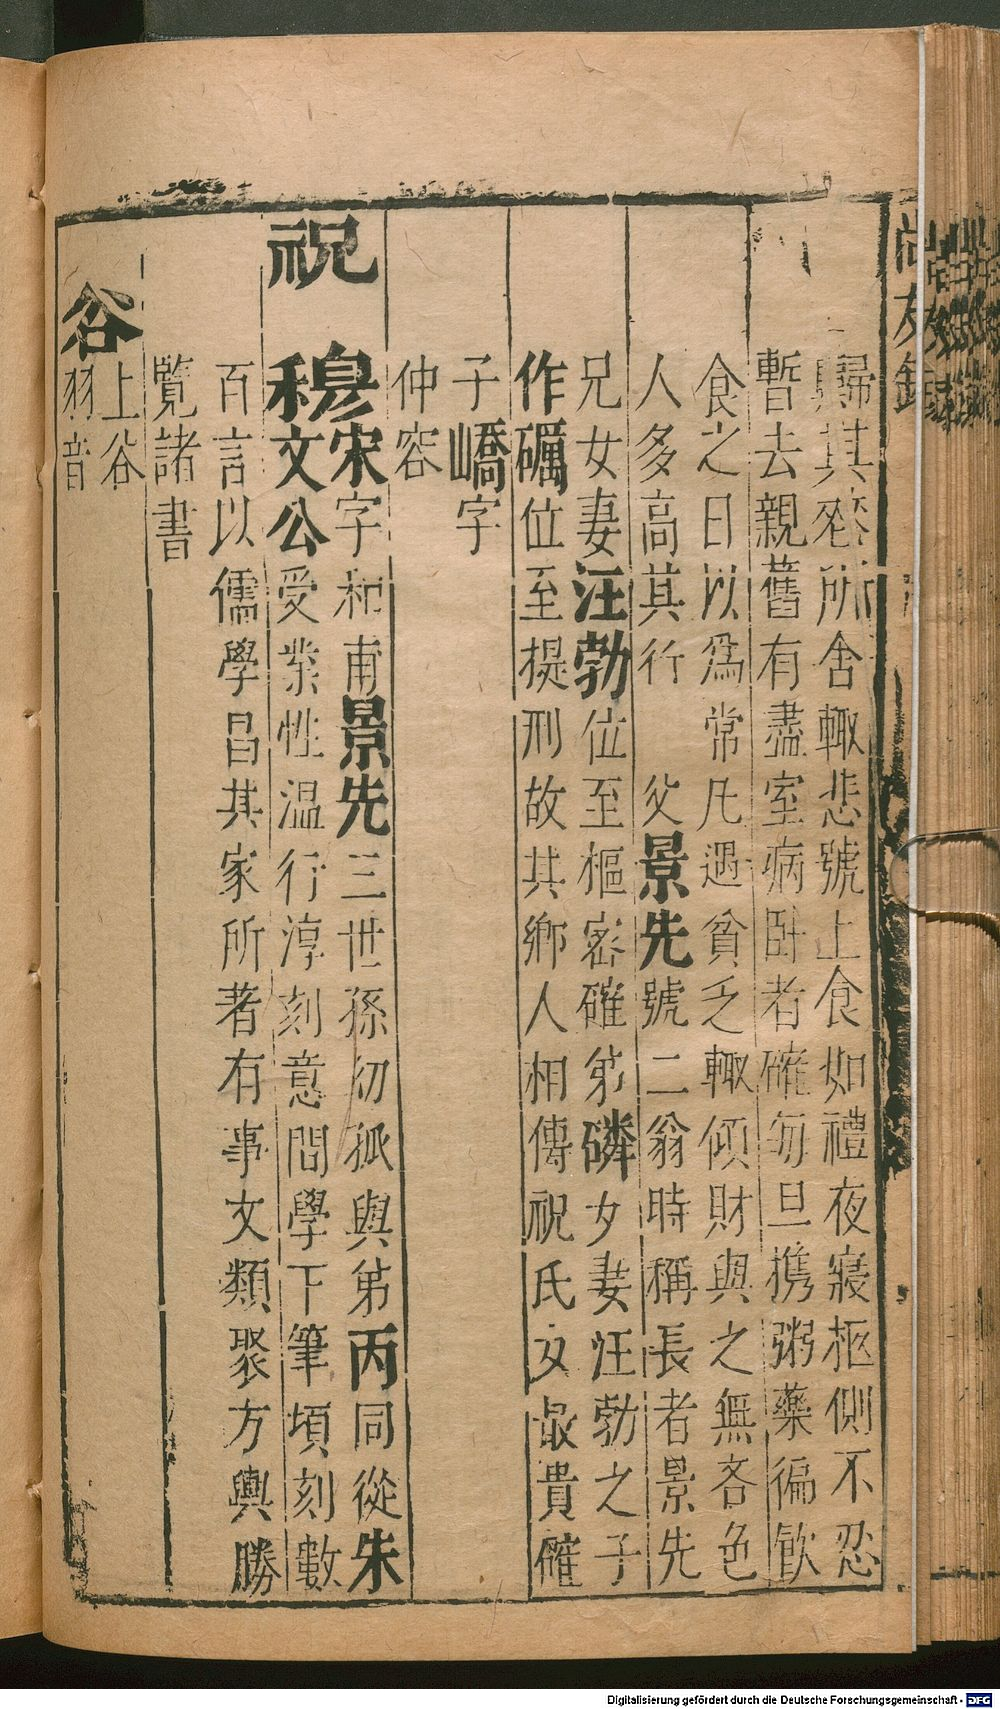 尚友錄
歸其丧所舍輙悲號上食如禮夜寢柩側不忍
暫去親舊有盡室病卧者確每旦攜粥藥徧飲
食之日以爲常凡遇貧乏輙傾財與之無吝色
人多高其行 父景先號二翁時稱長者景先
兄女妻汪勃位至樞密確弟磷女妻汪勃之子
作礪位至提刑故其鄉人相傳祝氏女最貴確
子嶠字
仲容
祝
穆宋字和甫景先三世孫幼孤與弟丙同從朱
文公受業性溫行淳刻意問學下筆頃刻數
百言以儒學昌其家所著有事文類聚方輿勝
覽諸書
谷
上谷
羽音
Digitalisierung gefördert durch die Deutsche Forschungsgemeinschaft - DFG